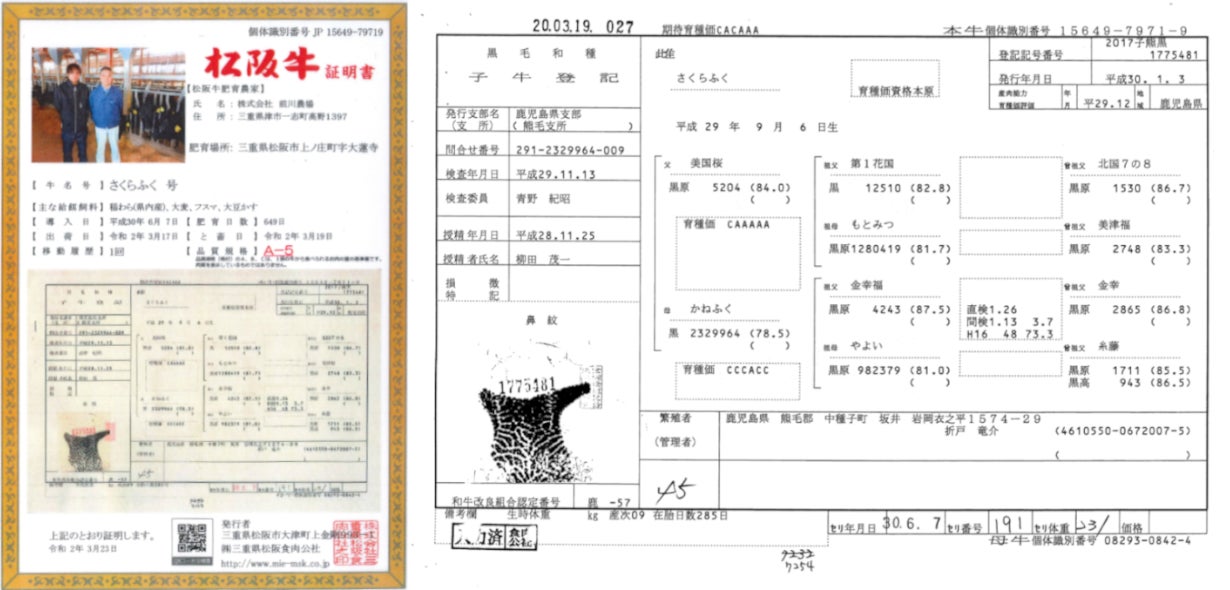 個体識別番号 JP 15649-79719
松阪牛 証明書
【松阪牛肥育農家】
氏 名：株式会社 前川農場
住 所：三重県津市一志町高野1397
肥育場所：三重県松阪市上ノ庄町字大蓮寺
【牛名号】さくらふく 号
【主な給餌飼料】稲わら(県内産)、大麦、フスマ、大豆かす
【導入日】平成30年 6月 7日【肥育日数】649日
【出荷日】令和 2年 3月17日【と畜日】令和 2年 3月19日
【移動履歴】1回 【品質規格】A-5
上記のとおり証明します。
令和 2年 3月23日
発行者
三重県松阪市大津町上金剛993-1
㈱三重県松阪食肉公社
http://www.mie-msk.co.jp
20.03.19. 027 期待育種価CACAAA 本牛個体識別番号 15649-7971-9
黒毛和種
子牛登記
発行支部名 鹿児島県支部
(支所) (熊毛支所)
問合せ番号 291-2329964-009
検査年月日 平成29.11.13
検査委員 青野 紀昭
授精年月日 平成28.11.25
授精者氏名 柳田 茂一
損徴
特記
鼻紋
1775481
和牛改良組合認定番号 鹿 -57
さくらふく
育種価資格本原
登記記号番号 2017子熊黒
1775481
発行年月日 平成30. 1. 3
産肉能力
育種価評価 年月 平29.12 地域 鹿児島県
平成 29 年 9 月 6 日生
父 美国桜
黒原 5204 (84.0)
( )
育種価 CAAAAA
母 かねふく
黒 2329964 (78.5)
( )
育種価 CCCACC
祖父 第1花国
黒 12510 (82.8)
( )
祖母 もとみつ
黒原1280419 (81.7)
( )
祖父 金幸福
黒原 4243 (87.5)
( )
祖母 やよい
黒原 982379 (81.0)
( )
直検1.26
間検1.13 3.7
H16 48 73.3
曾祖父 北国7の8
黒原 1530 (86.7)
( )
曾祖父 美津福
黒原 2748 (83.3)
( )
曾祖父 金幸
黒原 2865 (86.8)
( )
曾祖父 糸藤
黒原 1711 (85.5)
黒高 943 (86.5)
繁殖者 鹿児島県 熊毛郡 中種子町 坂井 岩岡衣之平1574-29
(管理者) 折戸 竜介 (4610550-0672007-5)
( )
45
備考欄 生時体重 kg 産次09 在胎日数285日
セリ年月日 30.6.7 セリ番号 191 セリ体重 231 価格
母牛個体識別番号 08293-0842-4
7254